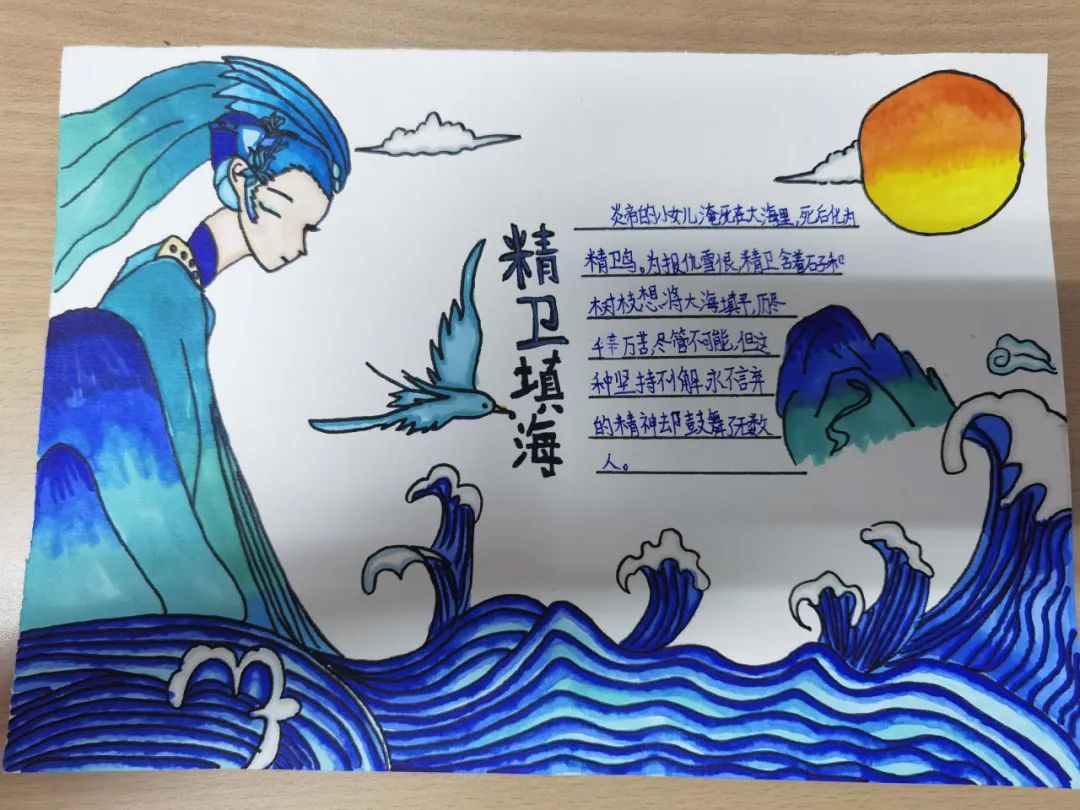 精卫填海
炎帝的小女儿淹死在大海里,死后化为
精卫鸟。为报仇雪恨,精卫含着石子和
树枝想将大海填平,历尽
千辛万苦,尽管不可能,但这
种坚持不懈永不言弃
的精神却鼓舞了无数
人。